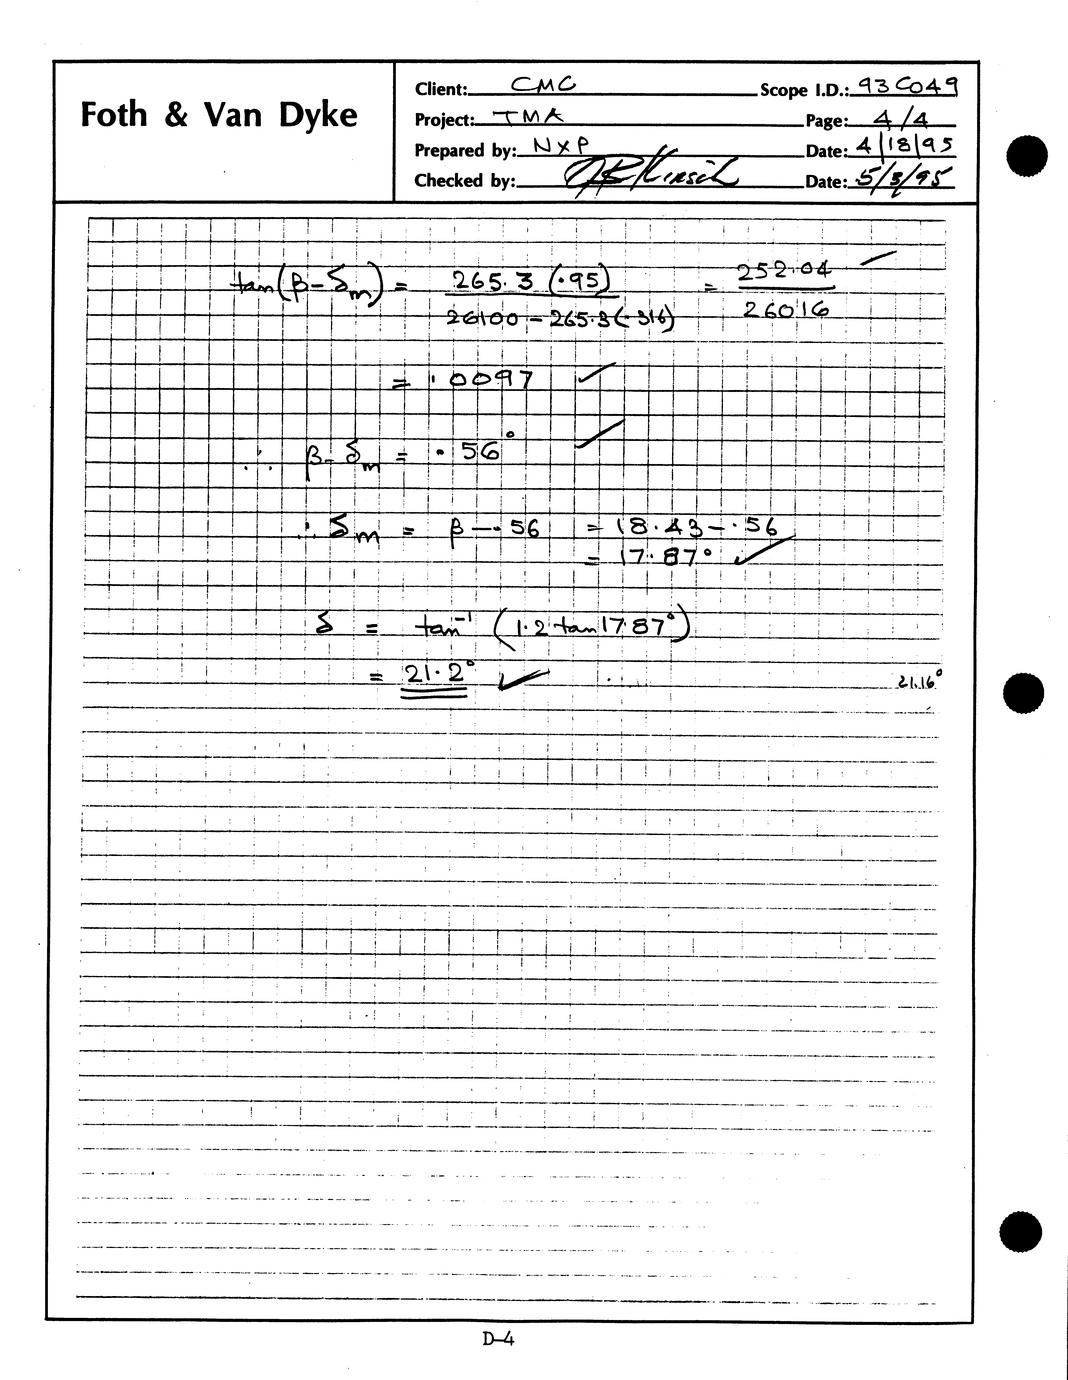 Foth & Van Dyke
Client: CMC Scope I.D.: 93C049
Project: TMA Page: 4/4
Prepared by: NXP Date: 4/18/95
Checked by: Date: 5/3/95
tan(β-δm) = 265.3 (.95) / 26100 - 265.3(.316) = 252.04 / 26016 ✓
= .0097 ✓
∴ β-δm = .56° ✓
∴ δm = β - .56 = 18.43 - .56
= 17.87° ✓
δ = tan⁻¹ (1.2 tan 17.87°)
= 21.2° ✓ 21.16°
D-4